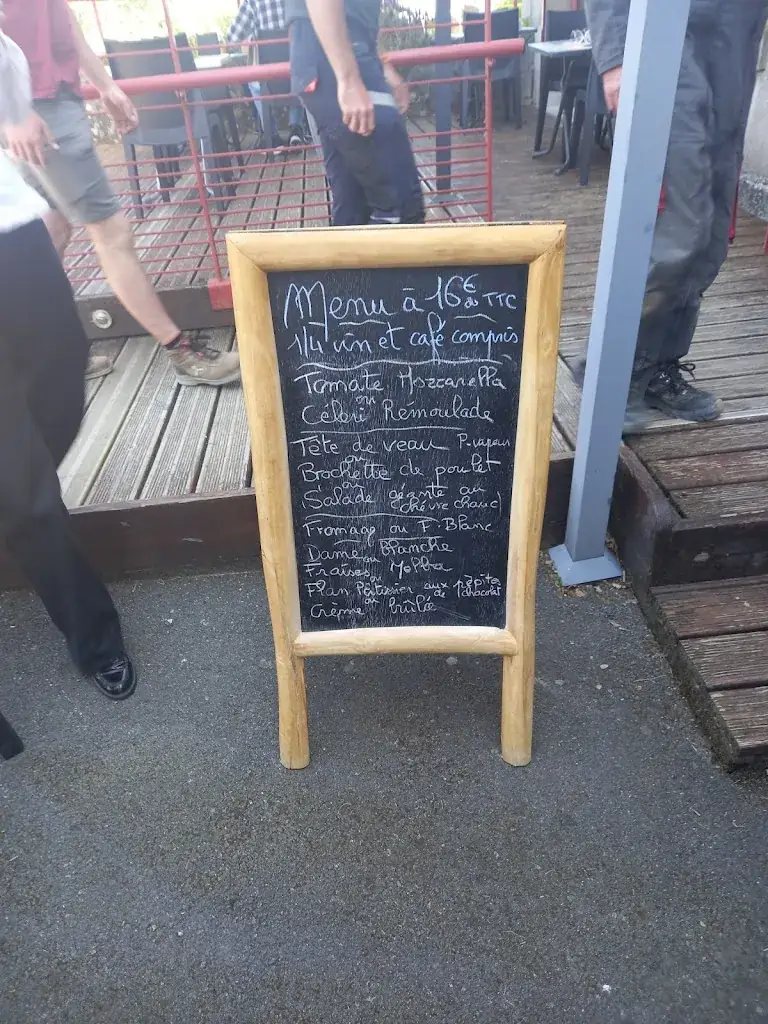 Menu à 16€ TTC
1/4 vin et café compris
Tomate Mozzarella
ou
Céleri Rémoulade
Tête de veau P. vapeur
ou
Brochette de poulet
ou
Salade géante au
(chèvre chaud)
Fromage ou F. Blanc
Dame Blanche
ou
Fraises Melba
ou
Flan Pâtissier aux pépites
de chocolat
ou
Crème brûlée